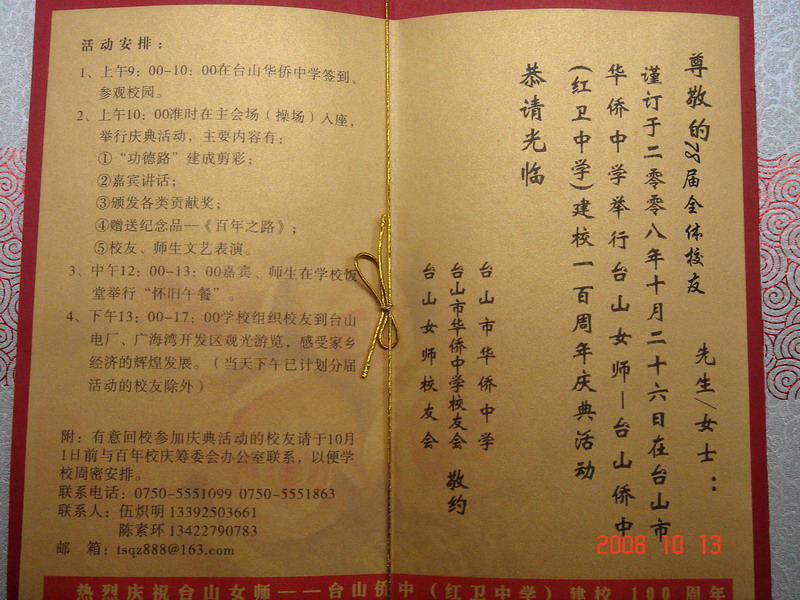 活动安排：
1、上午9：00-10：00在台山华侨中学签到、
参观校园。
2、上午10：00准时在主会场（操场）入座，
举行庆典活动，主要内容有：
①“功德路”建成剪彩；
②嘉宾讲话；
③颁发各类贡献奖；
④赠送纪念品—《百年之路》；
⑤校友、师生文艺表演。
3、中午12：00-13：00嘉宾、师生在学校饭
堂举行“怀旧午餐”。
4、下午13：00-17：00学校组织校友到台山
电厂、广海湾开发区观光游览，感受家乡
经济的辉煌发展。（当天下午已计划分届
活动的校友除外）
附：有意回校参加庆典活动的校友请于10月
1日前与百年校庆筹委会办公室联系，以便学
校周密安排。
联系电话：0750-5551099 0750-5551863
联系人：伍炽明 13392503661
陈素环 13422790783
邮 箱：tsqz888@163.com
尊敬的78届全体校友 先生/女士：
谨订于二零零八年十月二十六日在台山市
华侨中学举行台山女师—台山侨中
(红卫中学)建校一百周年庆典活动
恭请光临
台山市华侨中学
台山市华侨中学校友会 敬约
台山女师校友会
2008 10 13
热烈庆祝台山女师——台山侨中（红卫中学）建校 100 周年